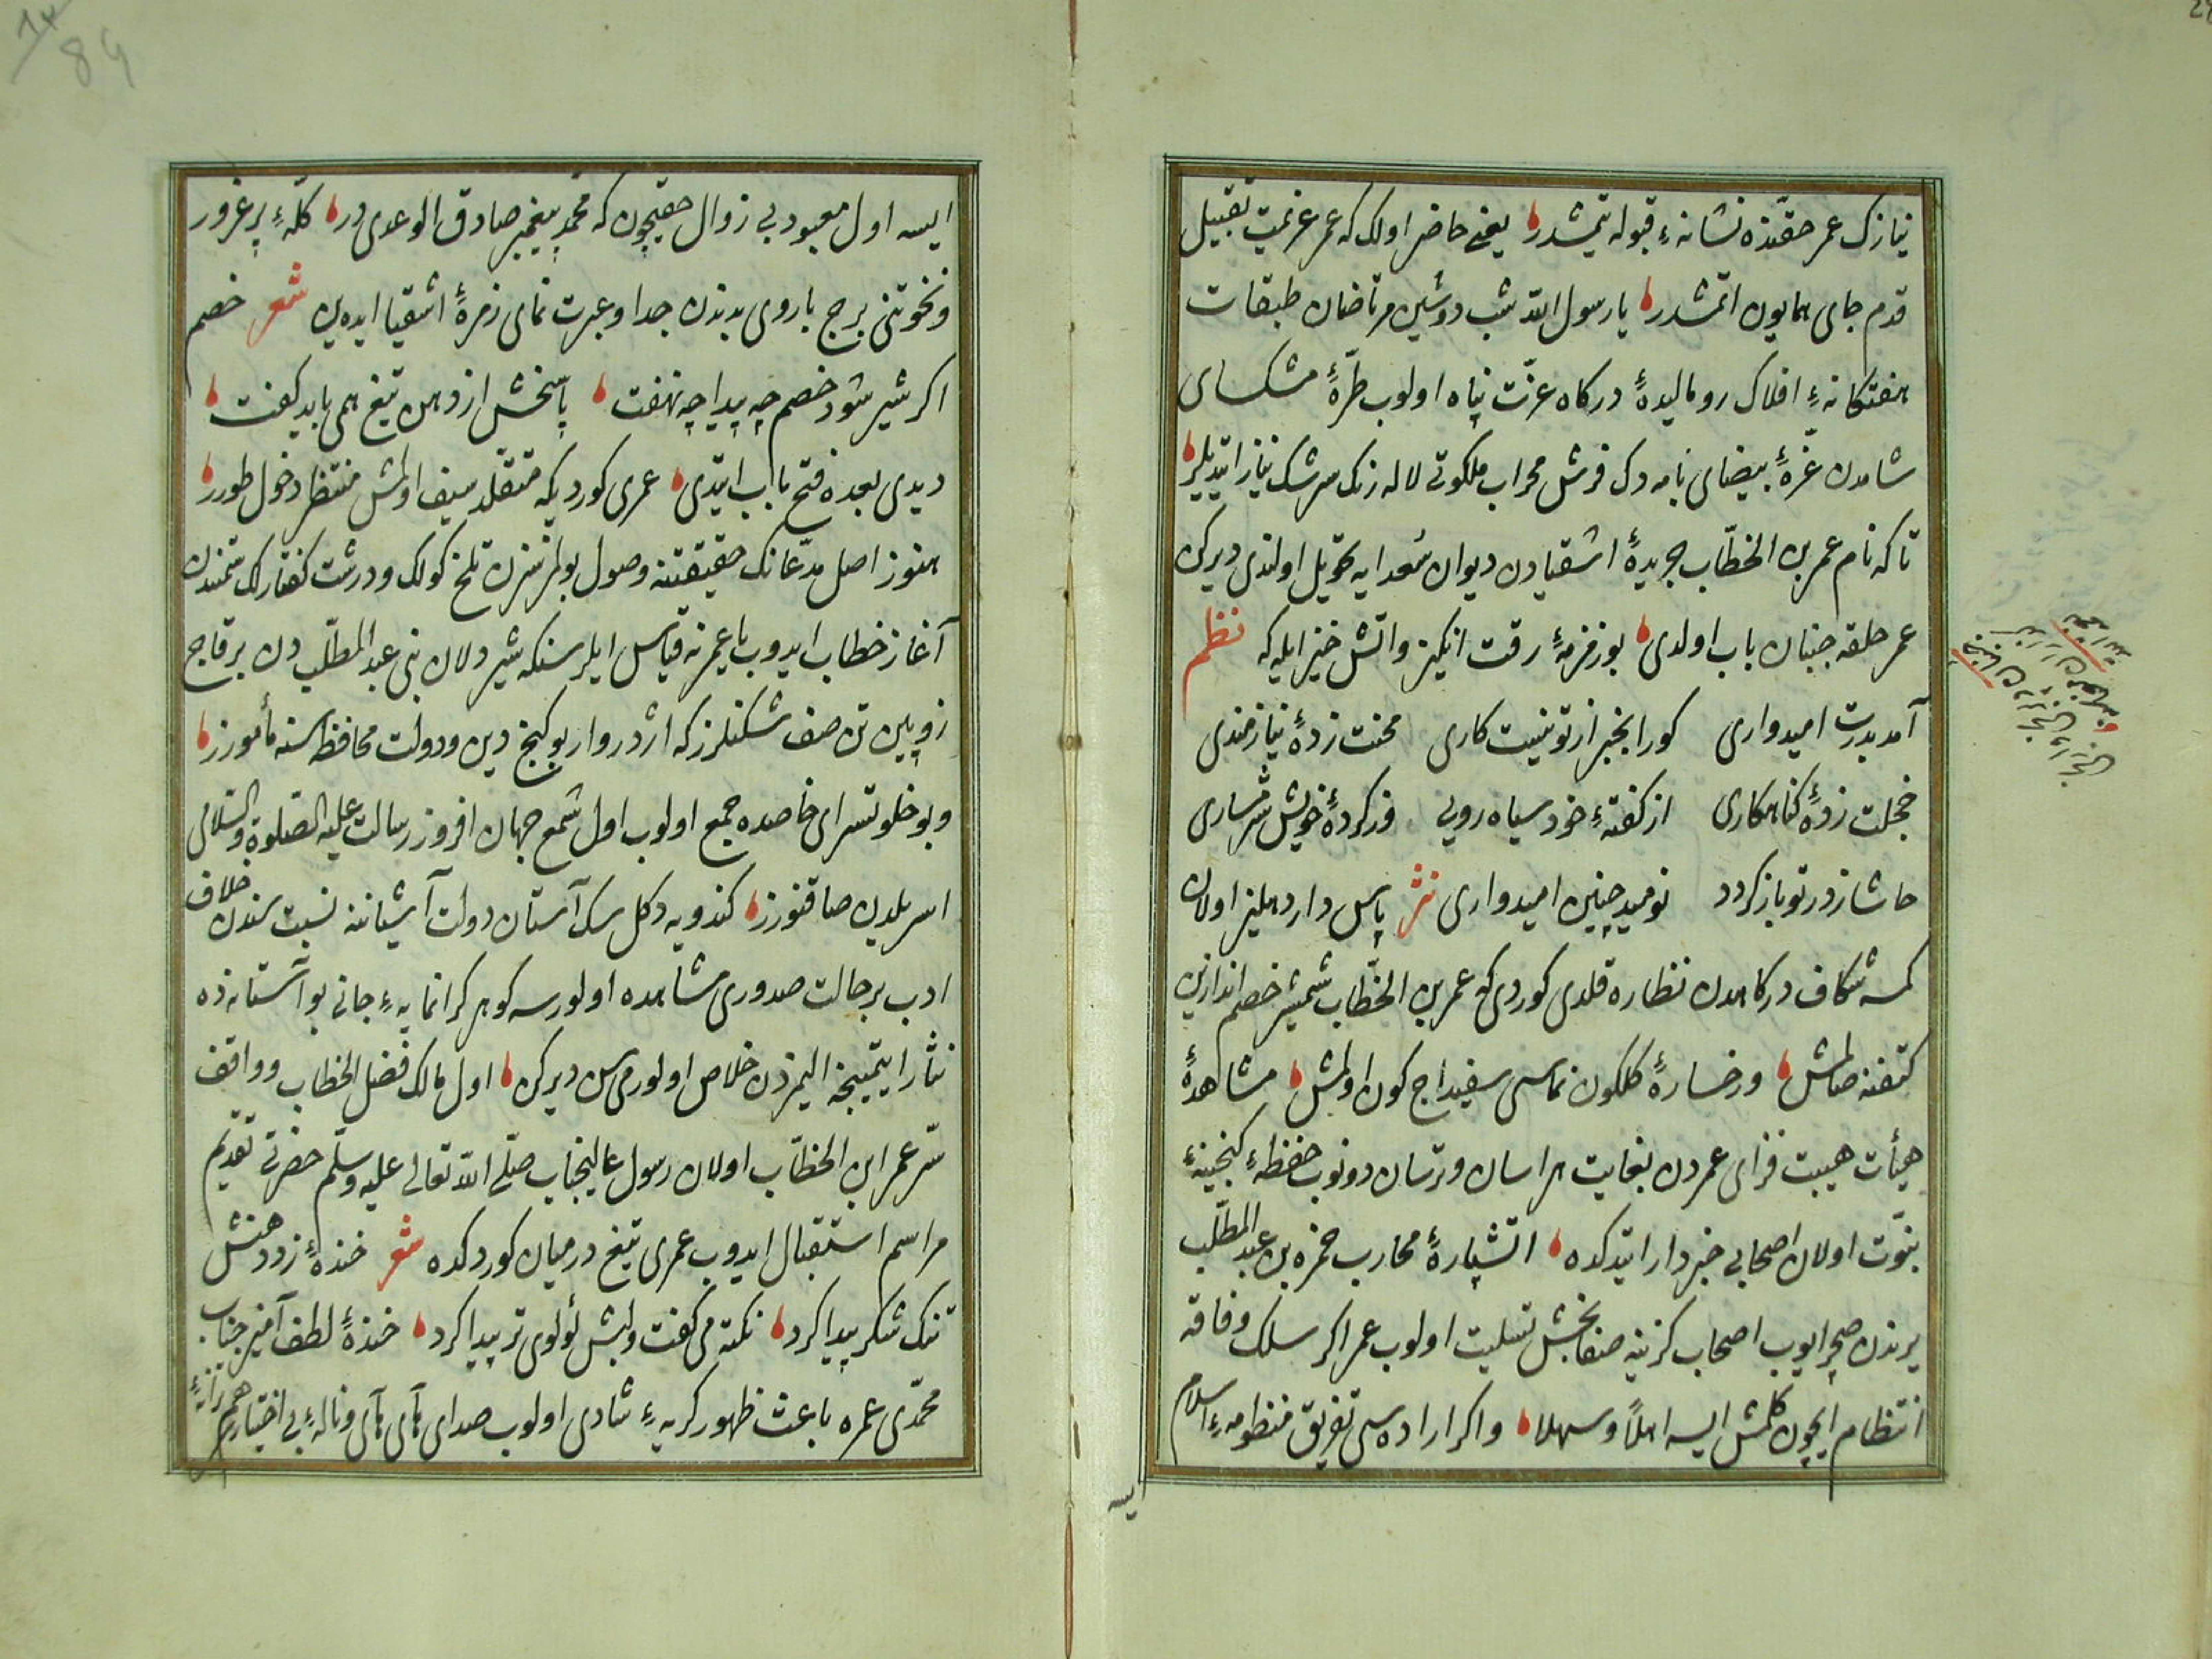 نيازك عمر حقنده نشانهٔ قبوله يتمشدر يعنى حاضر اولك كه عمر عزيمت تقبيل
قدم جاى همايون اتمشدر يا رسول الله شب دوشين مرتاضان طبقات
هفتكانهٔ افلاك روماليدهٔ دركاه عزت پناه اولوب طرّهٔ مشكساى
شامدن غرّهٔ بيضاى بامدادك فرش محراب ملكوتى لاله رنك سرشك نياز ايتديلر
تا كه نام عمر بن الخطّاب جريدهٔ اشقيادن ديوان سعدايه تحويل اولندى ديركن
عمر حلقه جنبان باب اولدى بو زمزمهٔ رقت انكيز واتش خيز ايله كه نظم
آمد بدرت اميدوارى كورا بجز از تو نيست كارى محنت زدهٔ نيازمندى
خجلت زدهٔ كناهكارى از كفتهٔ خود سياه رويى وز كردهٔ خويش شرمسارى
حاشا ز در تو باز كردد نوميد چنين اميدوارى نثر پاس دار دهليز اولان
كمسه شكاف دركاهدن نظاره قلدى كوردى كه عمر بن الخطّاب شمشير خصم اندازين
كتفنه صالمش ورخسارهٔ كلكون نماسى سفيداج كون اولمش مشاهدهٔ
هيأت هيبت فزاى عمردن بغايت هراسان وترسان دونوب حفظهٔ كنجينهٔ
نبوّت اولان اصحابى خبردار ايتدكده اتشپارهٔ محارب حمزه بن عبد المطّلب
يرندن صچرايوب اصحاب كزينه صفابخش تسليت اولوب عمر اكر سلك وفاقه
انتظام ايچون كلمش ايسه اهلاً وسهلا واكر اراده سى تفريق منظومهٔ اسلام
ايسه
ايسه اول معبود بى زوال حقيچون كه محمد پيغمبر صادق الوعدى در كلّهٔ پر غرور
ونخوتنى برج باروى بدندن جدا وعبرت نماى زمرهٔ اشقيا ايده ين شعر خصم
اكر شير شود خصم چه پيدا چه نهفت پاسخش از دهن تيغ همى بايد كفت
ديدى بعده فتح باب ايتدى عمرى كورديكه متقلّد سيف اولمش منتظر دخول طورر
هنوز اصل مدّعانك حقيقتنه وصول بولمزدن تلخ كولك ودرشت كفتارلك سمتندن
آغاز خطاب ايدوب يا عمر نه قياس ايلرسنكه شير دلان بنى عبد المطّلب دن بر قاچ
زوپين تن صف شكنلرز كه اژدروار بو كنج دين ودولت محافظه سنه مأمورز
وبو خلوتسراى خاصده جمع اولوب اول شمع جهان افروز رسالت عليه الصّلوة والسّلامى
اسر يلدن صاقنورز كندويه دكل سك آستان دولت آشيانه نسبت سندن خلاف
ادب بر حالت صدورى مشاهده اولورسه كوهر كرانمايهٔ جانى بو آستانه ده
نثار ايتمينجه المزدن خلاص اولورميسن ديركن اول مالك فصل الخطاب وواقف
سرّ عمر ابن الخطّاب اولان رسول عاليجناب صلّى الله تعالى عليه وسلّم حضرتى تقديم
مراسم استقبال ايدوب عمرى تيغ درميان كوردكده شعر خندهٔ زد دهنش
تنك شكر پيدا كرد نكته مى كفت ولبش لؤلوى تر پيدا كرد خندهٔ لطف آميز جناب
محمّدى عمره باعث ظهور كريهٔ شادى اولوب صداى هاى هاى ونالهٔ بى اختيار